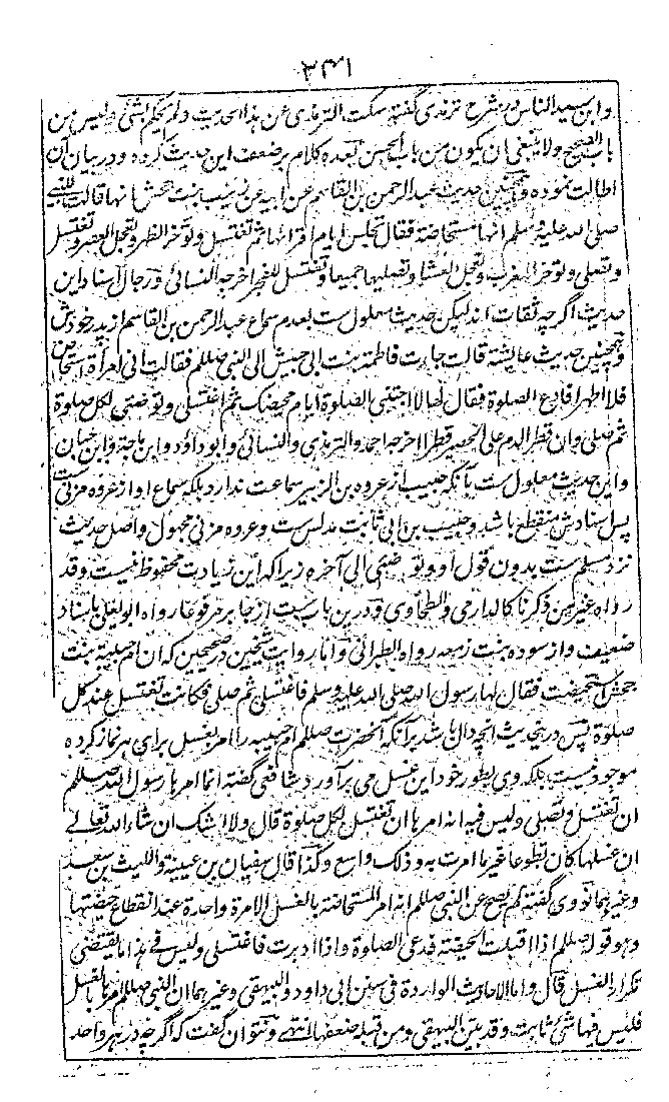 ۳۴۱
وابن سید الناس در شرح ترمذی گفته سکت الترمذی عن هذا الحدیث ولم یحکم بشئ ولیس من
باب الصحیح ولا ینبغی ان یکون من باب الحسن بعده کلام بر ضعف این حدیث کرده و در بیان آن
اطالت نموده و همچنین حدیث عبد الرحمن بن القاسم عن ابیه عن زینب بنت جحش انها قالت للنبی
صلی الله علیه وسلم انها مستحاضة فقال تجلس ایام اقرائها ثم تغتسل وتؤخر الظهر وتعجل العصر وتغتسل
وتصلی وتؤخر المغرب وتعجل العشاء وتصلیها جمیعا وتغتسل للفجر اخرجه النسائی ورجال اسناد این
حدیث اگرچه ثقات اند لیکن حدیث معلول ست بعدم سماع عبد الرحمن بن القاسم از پدر خودش
و همچنین حدیث عایشه قالت جاءت فاطمة بنت ابی حبیش الی النبی صللم فقالت انی امرأة استحاض
فلا اطهر افادع الصلوة فقال لها لا اجتنبی الصلوة ایام محیضک ثم اغتسلی وتوضئی لکل صلوة
ثم صلی وان قطر الدم علی الحصیر قطرا اخرجه احمد والترمذی والنسائی وابو داؤد وابن ماجة وابن حبان
واین حدیث معلول ست بآنکه حبیب از عروه بن الزبیر سماعت ندارد بلکه سماع او از عروه مزنی ست
پس اسنادش منقطع باشد وحبیب بن ابی ثابت مدلس ست وعروه مزنی مجهول واصل حدیث
نزد مسلم ست بدون قول او وتوضئی الی آخره زیرا که این زیادت محفوظ نیست وقد
رواه غیر من ذکرنا کالدارمی والطحاوی ودرین باب ست از جابر مرفوعا رواه ابو یعلی باسناد
ضعیف واز سوده بنت زمعه رواه الطبرانی واما روایت شیخین در صحیحین که ان ام حبیبة بنت
جحش استحیضت فقال لها رسول الله صلی الله علیه وسلم فاغتسلی ثم صلی فکانت تغتسل عند کل
صلوة پس درین حدیث آنچه دال باشد برآنکه آنحضرت صللم ام حبیبه را امر بغسل برای هر نماز کرده
موجود نیست بلکه وی بطور خود این غسل می برآورد شافعی گفته انما امرها رسول الله صللم
ان تغتسل وتصلی ولیس فیه انه امرها ان تغتسل لکل صلوة قال ولا اشک ان شاء الله تعالے
ان غسلها کان تطوعا غیر ما امرت به وذلک واسع وکذا قال سفیان بن عیینة واللیث بن سعد
وغیرهما نووی گفته لم یصح عن النبی صللم انه امر المستحاضة بالغسل الا مرة واحدة عند انقطاع حیضتها
وهو قوله صللم اذا اقبلت الحیضة فدعی الصلوة واذا ادبرت فاغتسلی ولیس فی هذا ما یقتضی
تکرار الغسل قال واما الاحادیث الواردة فی سنن ابی داود والبیهقی وغیرهما ان النبی صللم امرها بالغسل
فلیس فیها شئ ثابت وقد بین البیهقی ومن قبله ضعفها انتهے ونتوان گفت که اگرچه در هر واحد